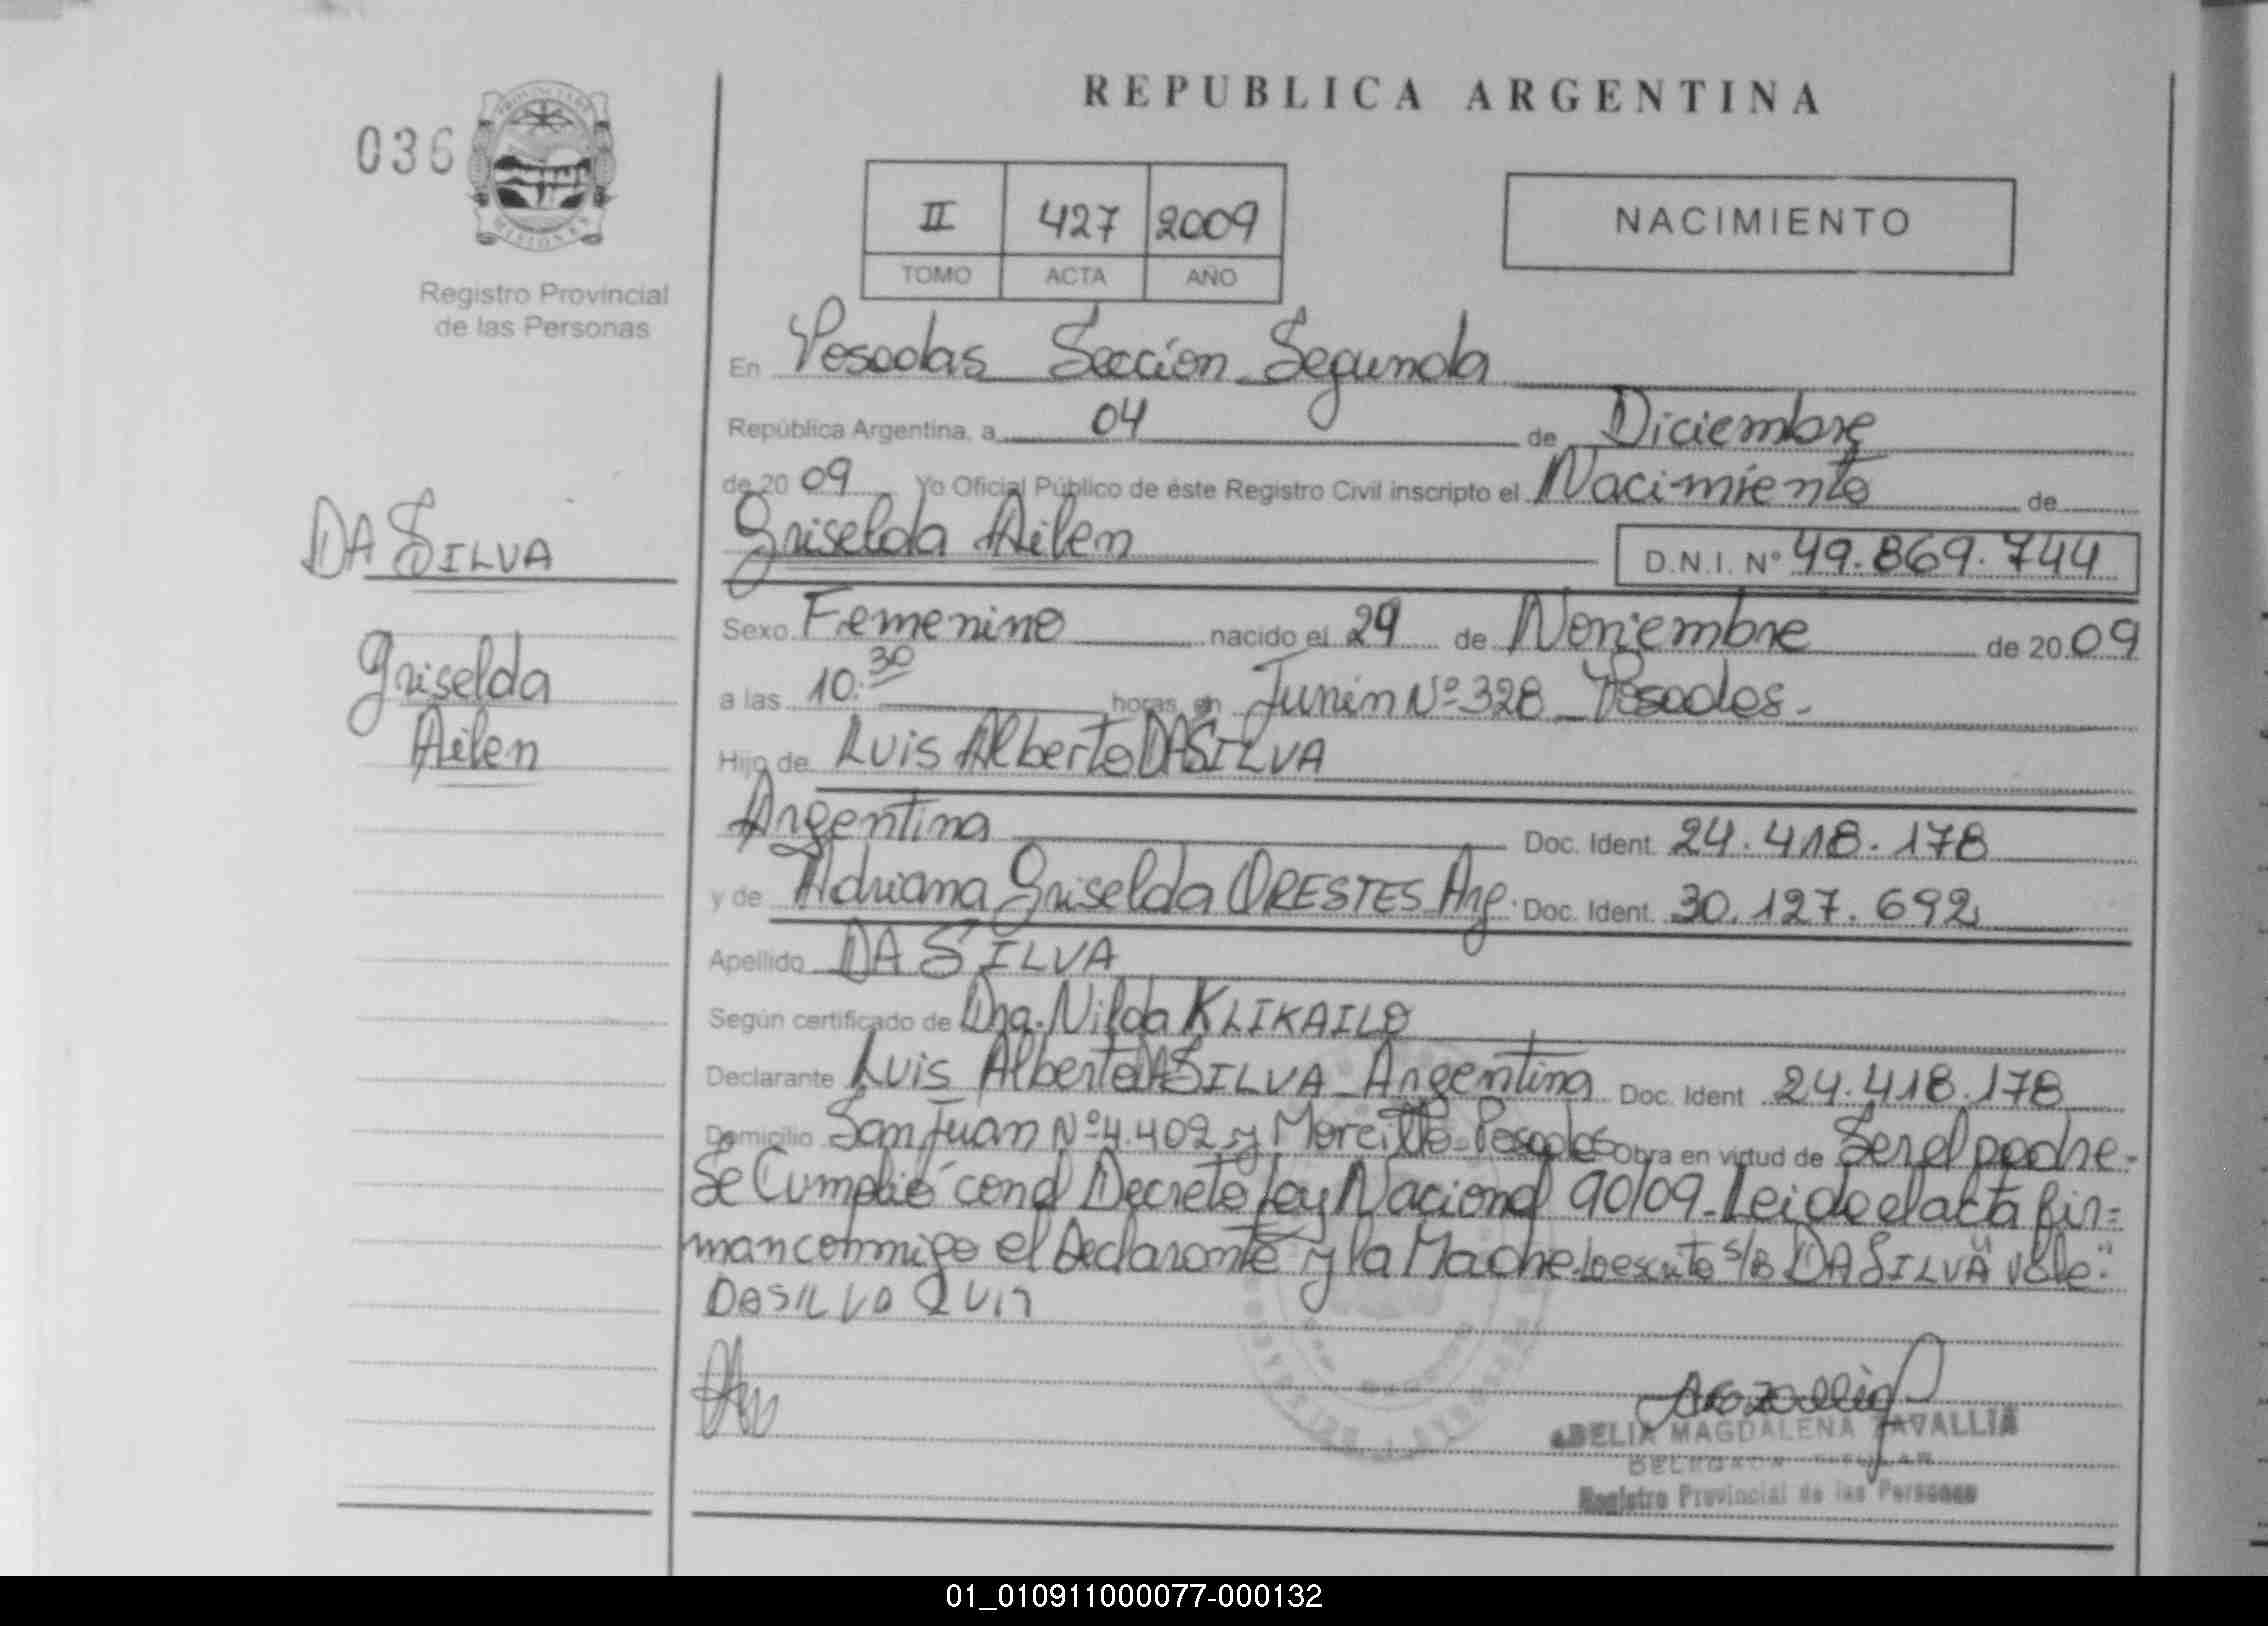 REPUBLICA ARGENTINA
036
PROVINCIA DE
MISIONES
Registro Provincial
de las Personas
II 427 2009
TOMO ACTA AÑO
NACIMIENTO
En Posadas Sección Segunda
República Argentina, a 04 de Diciembre
de 20 09 Yo Oficial Público de éste Registro Civil inscripto el Nacimiento de
Griselda Ailen D.N.I. Nº 49.869.744
DA SILVA
Griselda
Ailen
Sexo Femenino nacido el 29 de Noviembre de 20 09
a las 10:30 horas, en Junin Nº 328 Posadas.
Hijo de Luis Alberto DA SILVA
Argentina Doc. Ident. 24.418.178
y de Adriana Griselda ORESTES Arg. Doc. Ident. 30.127.692
Apellido DA SILVA
Según certificado de Dra. Nilda KLIKAILO
Declarante Luis Alberto DA SILVA Argentina Doc. Ident 24.418.178
Domicilio San Juan Nº 4.402 y Posadas Obra en virtud de Ser el padre.
Se Cumplió con el Decreto Ley Nacional 90/09. Leida el acta fir=
man conmigo el Declarante y la Madre. Lo escrito s/b "DA SILVA" vale."
DASILVA LUIS
DELIA MAGDALENA ZAVALLIA
Registro Provincial de las Personas
01_010911000077-000132